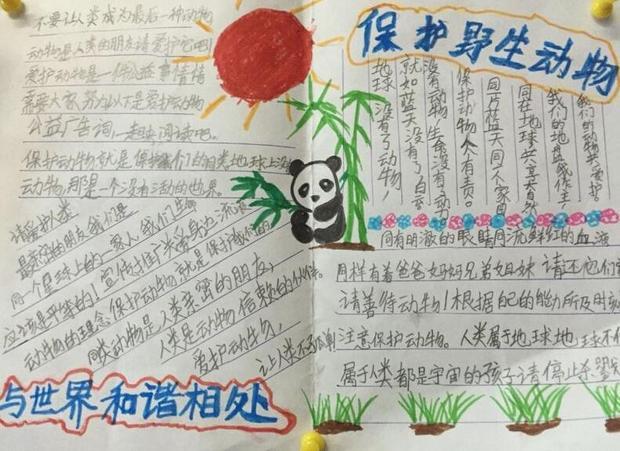 不要让人类成为最后一种动物
动物是人类的朋友请爱护它吧!
爱护动物是一件公益事情
需要大家努力以下是爱护动物
公益广告词,一起来阅读吧。
保护动物就是保护我们的
动物,那是一个没有活的世界。
请爱护人类
最亲密的朋友我们是
同一个星球上的一家人,我们生物
应该是平等的!
动物的理念保护动物就是保护我们的
同类动物是人类亲密的朋友,
人类是动物信赖的伙伴。
爱护动物,
让人类不再孤单
与世界和谐相处
保护野生动物
我们的动物共爱护
我们的地盘
同在地球共享大自然
同片蓝天同一家园
保护动物人人有责。
没有动物,生命没有了动
就如蓝天没有了白云
地球,没有了动物,
同有明澈的眼睛同流鲜红的血液
同样有着爸爸妈妈兄弟姐妹 请还它们
请善待动物!根据自己的能力所及时刻
注意保护动物。人类属于地球地球不
属于人类都是宇宙的孩子请停止杀